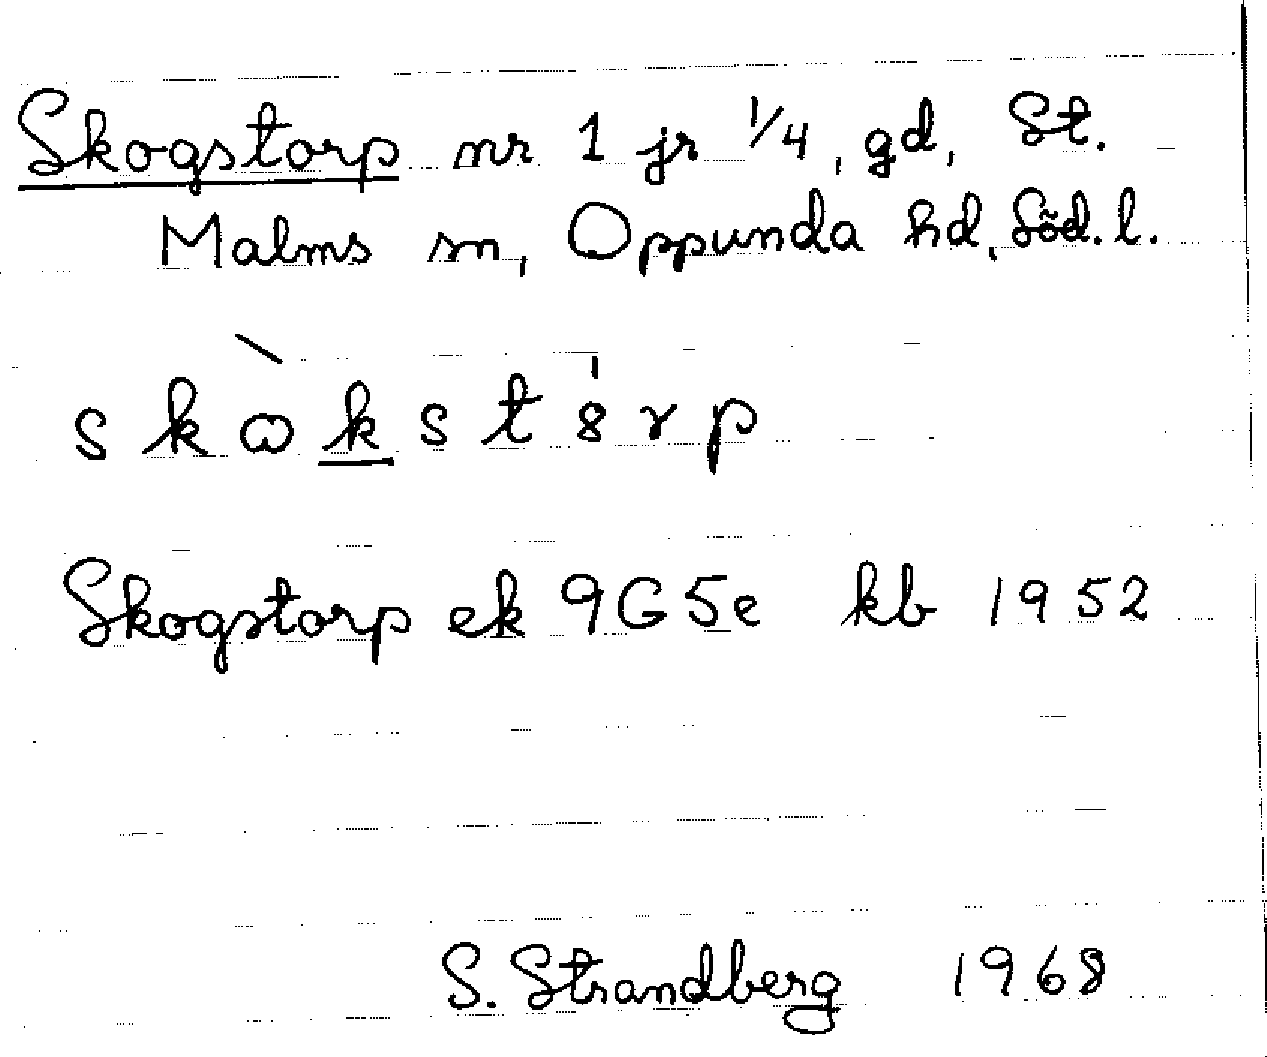 Skogstorp nr 1 jr 1/4, gd, St.
Malms sn, Oppunda hd, Söd. l.
Skogstorp ek 9G5e kb 1952
S. Strandberg 1968